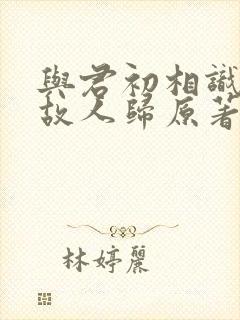 與君初相識
故人歸原著
林婷麗